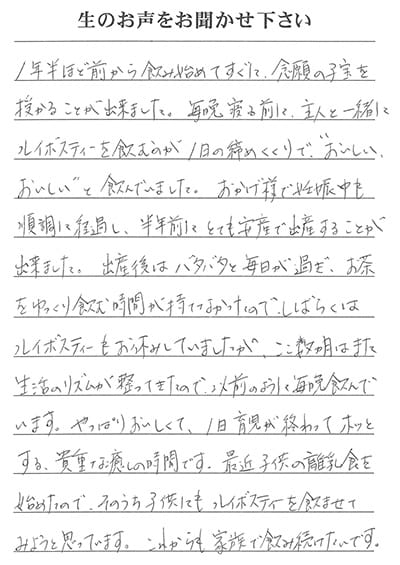 生のお声をお聞かせ下さい
1年半ほど前から飲み始めてすぐに、念願の子宝を
授かることが出来ました。毎晩寝る前に、主人と一緒に
ルイボスティーを飲むのが1日の締めくくりで、"おいしい、
おいしい"と飲んでいました。おかげ様で妊娠中も
順調に経過し、半年前にとても安産で出産することが
出来ました。出産後はバタバタと毎日が過ぎ、お茶
をゆっくり飲む時間が持てなかったので、しばらくは
ルイボスティーもお休みしていましたが、ここ数カ月はまた
生活のリズムが整ってきたので、以前のように毎晩飲んで
います。やっぱりおいしくて、1日育児が終わってホッと
する、貴重な癒しの時間です。最近子供の離乳食を
始めたので、そのうち子供にもルイボスティーを飲ませて
みようと思っています。これからも家族で飲み続けたいです。